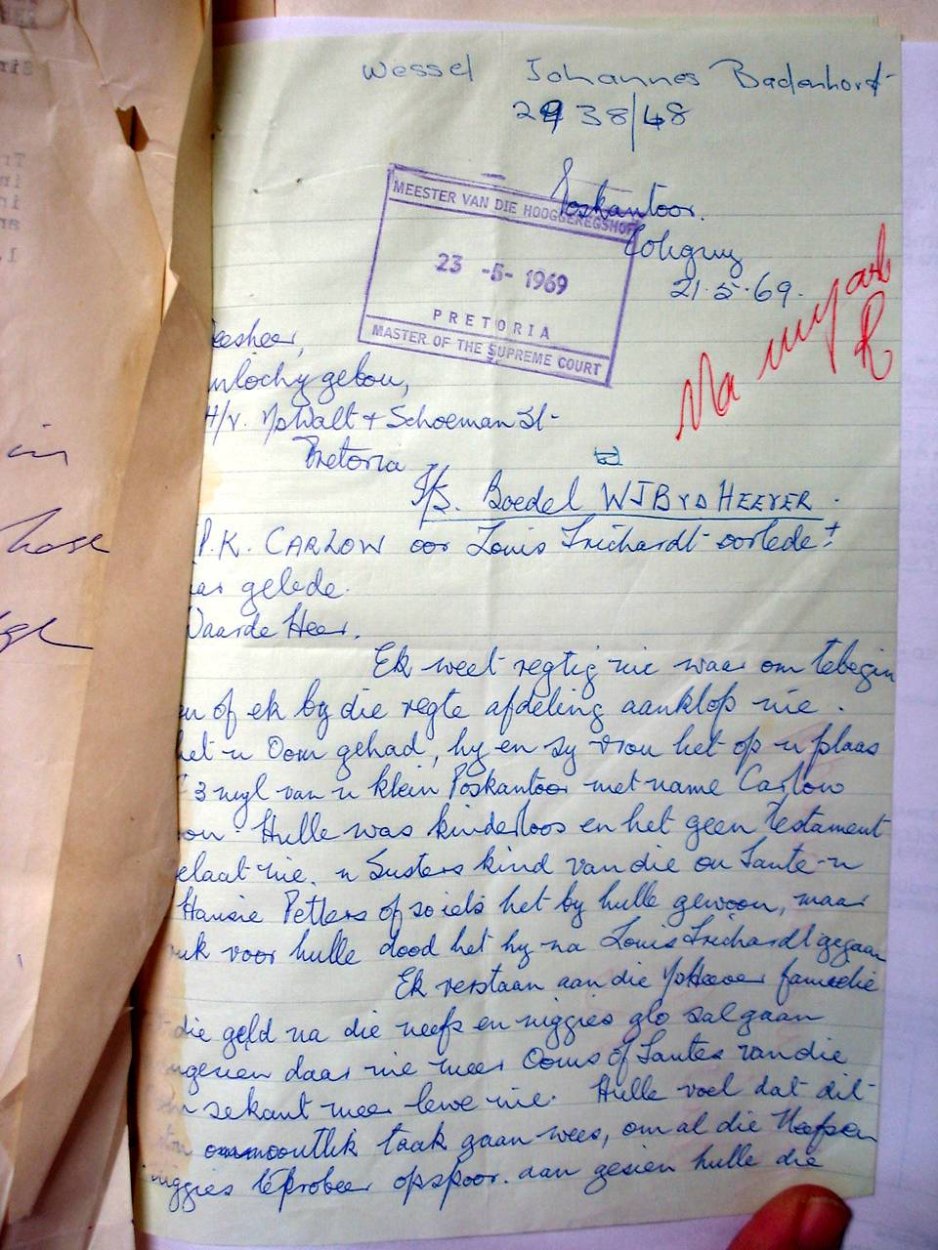 Wessel Johannes Badenhorst
2938/48
Poskantoor.
MEESTER VAN DIE HOOGGEREGSHOF
Coligny
23 -5- 1969
21.5.69.
PRETORIA
MASTER OF THE SUPREME COURT
Na
eesheer,
nlochy gebou,
H/v. vd Walt + Schoeman St-
Pretoria
I/S. Boedel WJB VD HEEVER.
P.K. CARLOW oor Louis Trichardt oorlede ±
aar gelede.
Waarde Heer.
Ek weet regtig nie waar om tebegin
en of ek by die regte afdeling aanklop nie.
het 'n Oom gehad, hy en sy vrou het op 'n plaas
3 myl van 'n klein Poskantoor met name Carlow
oon. Hulle was kinderloos en het geen testament
elaat nie. 'n Susters kind van die ou Tante 'n
Hansie Petters of so iets het by hulle gewoon, maar
ruk voor hulle dood het hy na Louis Trichardt gegaan
Ek verstaan aan die vd Heever familie
die geld na die neefs en niggies glo sal gaan
angesien daar nie meer Ooms of Tantes van die
se kant meer lewe nie. Hulle voel dat dit
moontlik taak gaan wees, om al die Neefs en
niggies te probeer opspoor. aan gesien hulle die